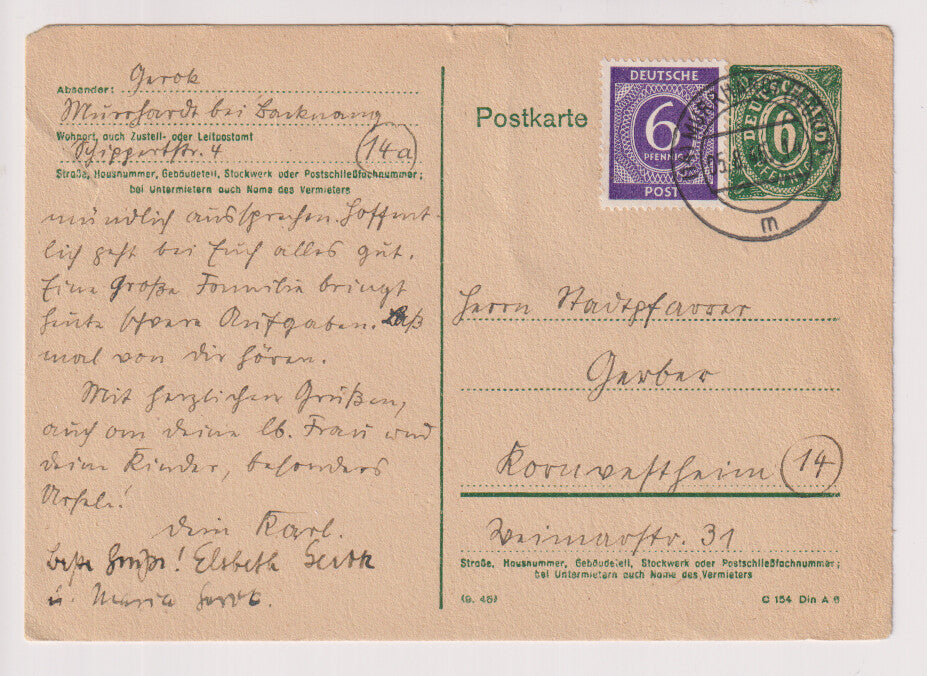 Absender: Gerok
Murrhardt bei Backnang
Wohnort, auch Zustell- oder Leitpostamt
Schippertstr. 4 (14a)
Straße, Hausnummer, Gebäudeteil, Stockwerk oder Postschließfachnummer;
bei Untermietern auch Name des Vermieters
mündlich aussprechen. Hoffent-
lich geht bei Euch alles gut.
Eine große Familie bringt
heute schwere Aufgaben. Laß
mal von dir hören.
Mit herzlichen Grüßen,
auch an deine lb. Frau und
deine Kinder, besonders
Ursele!
Dein Karl.
Beste Grüße! Elsbeth Gerok
u. Maria Gerok.
Postkarte
DEUTSCHE
6
PFENNIG
POST
DEUTSCHLAND
6
PFENNIG
MURRHARDT
m
Herrn Stadtpfarrer
Gerber
Kornwestheim (14)
Weimarstr. 31
Straße, Hausnummer, Gebäudeteil, Stockwerk oder Postschließfachnummer;
bei Untermietern auch Name des Vermieters
(9. 45)
C 154 Din A 6